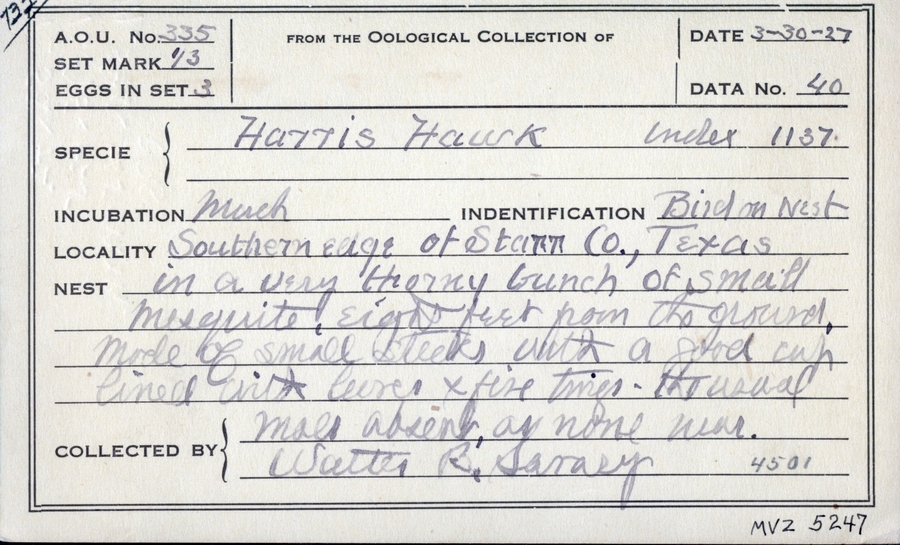 732
A.O.U. No. 335
FROM THE OOLOGICAL COLLECTION OF
DATE 3-30-27
SET MARK 1/3
EGGS IN SET 3
DATA No. 40
SPECIE Harris Hawk Index 1137.
INCUBATION Much INDENTIFICATION Bird on Nest
LOCALITY Southern edge of Starr Co., Texas
NEST in a very thorny bunch of small
Mesquite, eight feet from the ground,
Made of small sticks with a good cup
lined with leaves & fine twigs - the usual
Male absent, as none near.
COLLECTED BY Walter B. Savary 4501
MVZ 5247